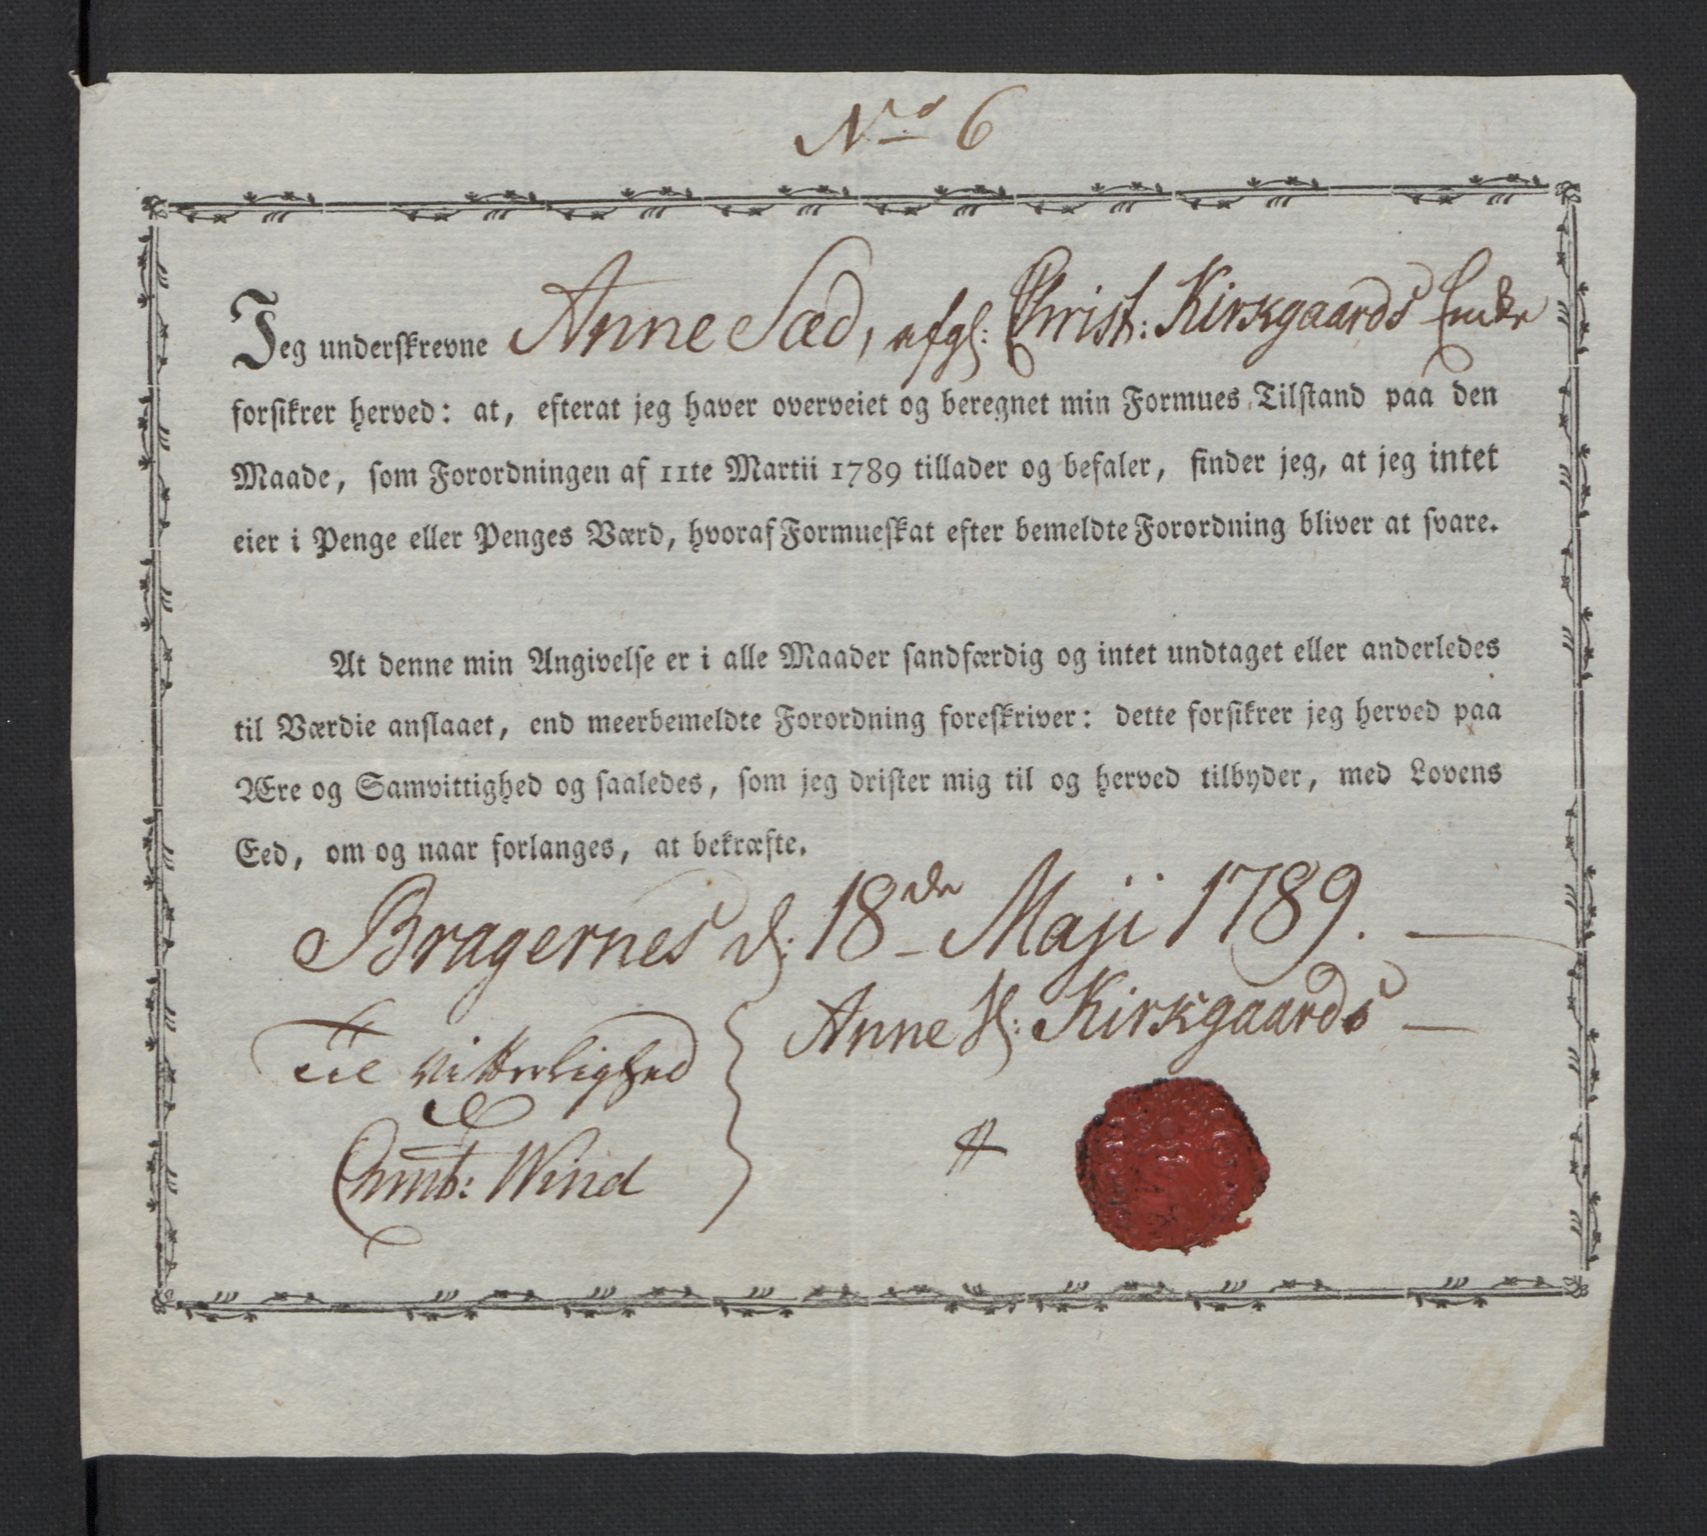 No 6
Jeg underskrevne Anne Sæd, afgl: Christ: Kirkgaards Enke
forsikrer herved: at, efterat jeg haver overveiet og beregnet min Formues Tilstand paa den
Maade, som Forordningen af 11te Martii 1789 tillader og befaler, finder jeg, at jeg intet
eier i Penge eller Penges Værd, hvoraf Formueskat efter bemeldte Forordning bliver at svare.
At denne min Angivelse er i alle Maader sandfærdig og intet undtaget eller anderledes
til Værdie anslaaet, end meerbemeldte Forordning foreskriver: dette forsikrer jeg herved paa
Ære og Samvittighed og saaledes, som jeg drister mig til og herved tilbyder, med Lovens
Eed, om og naar forlanges, at bekræfte.
Bragernes d: 18de Maji 1789.
Anne Sl: Kirkgaards
Til Vitterlighed
Wind